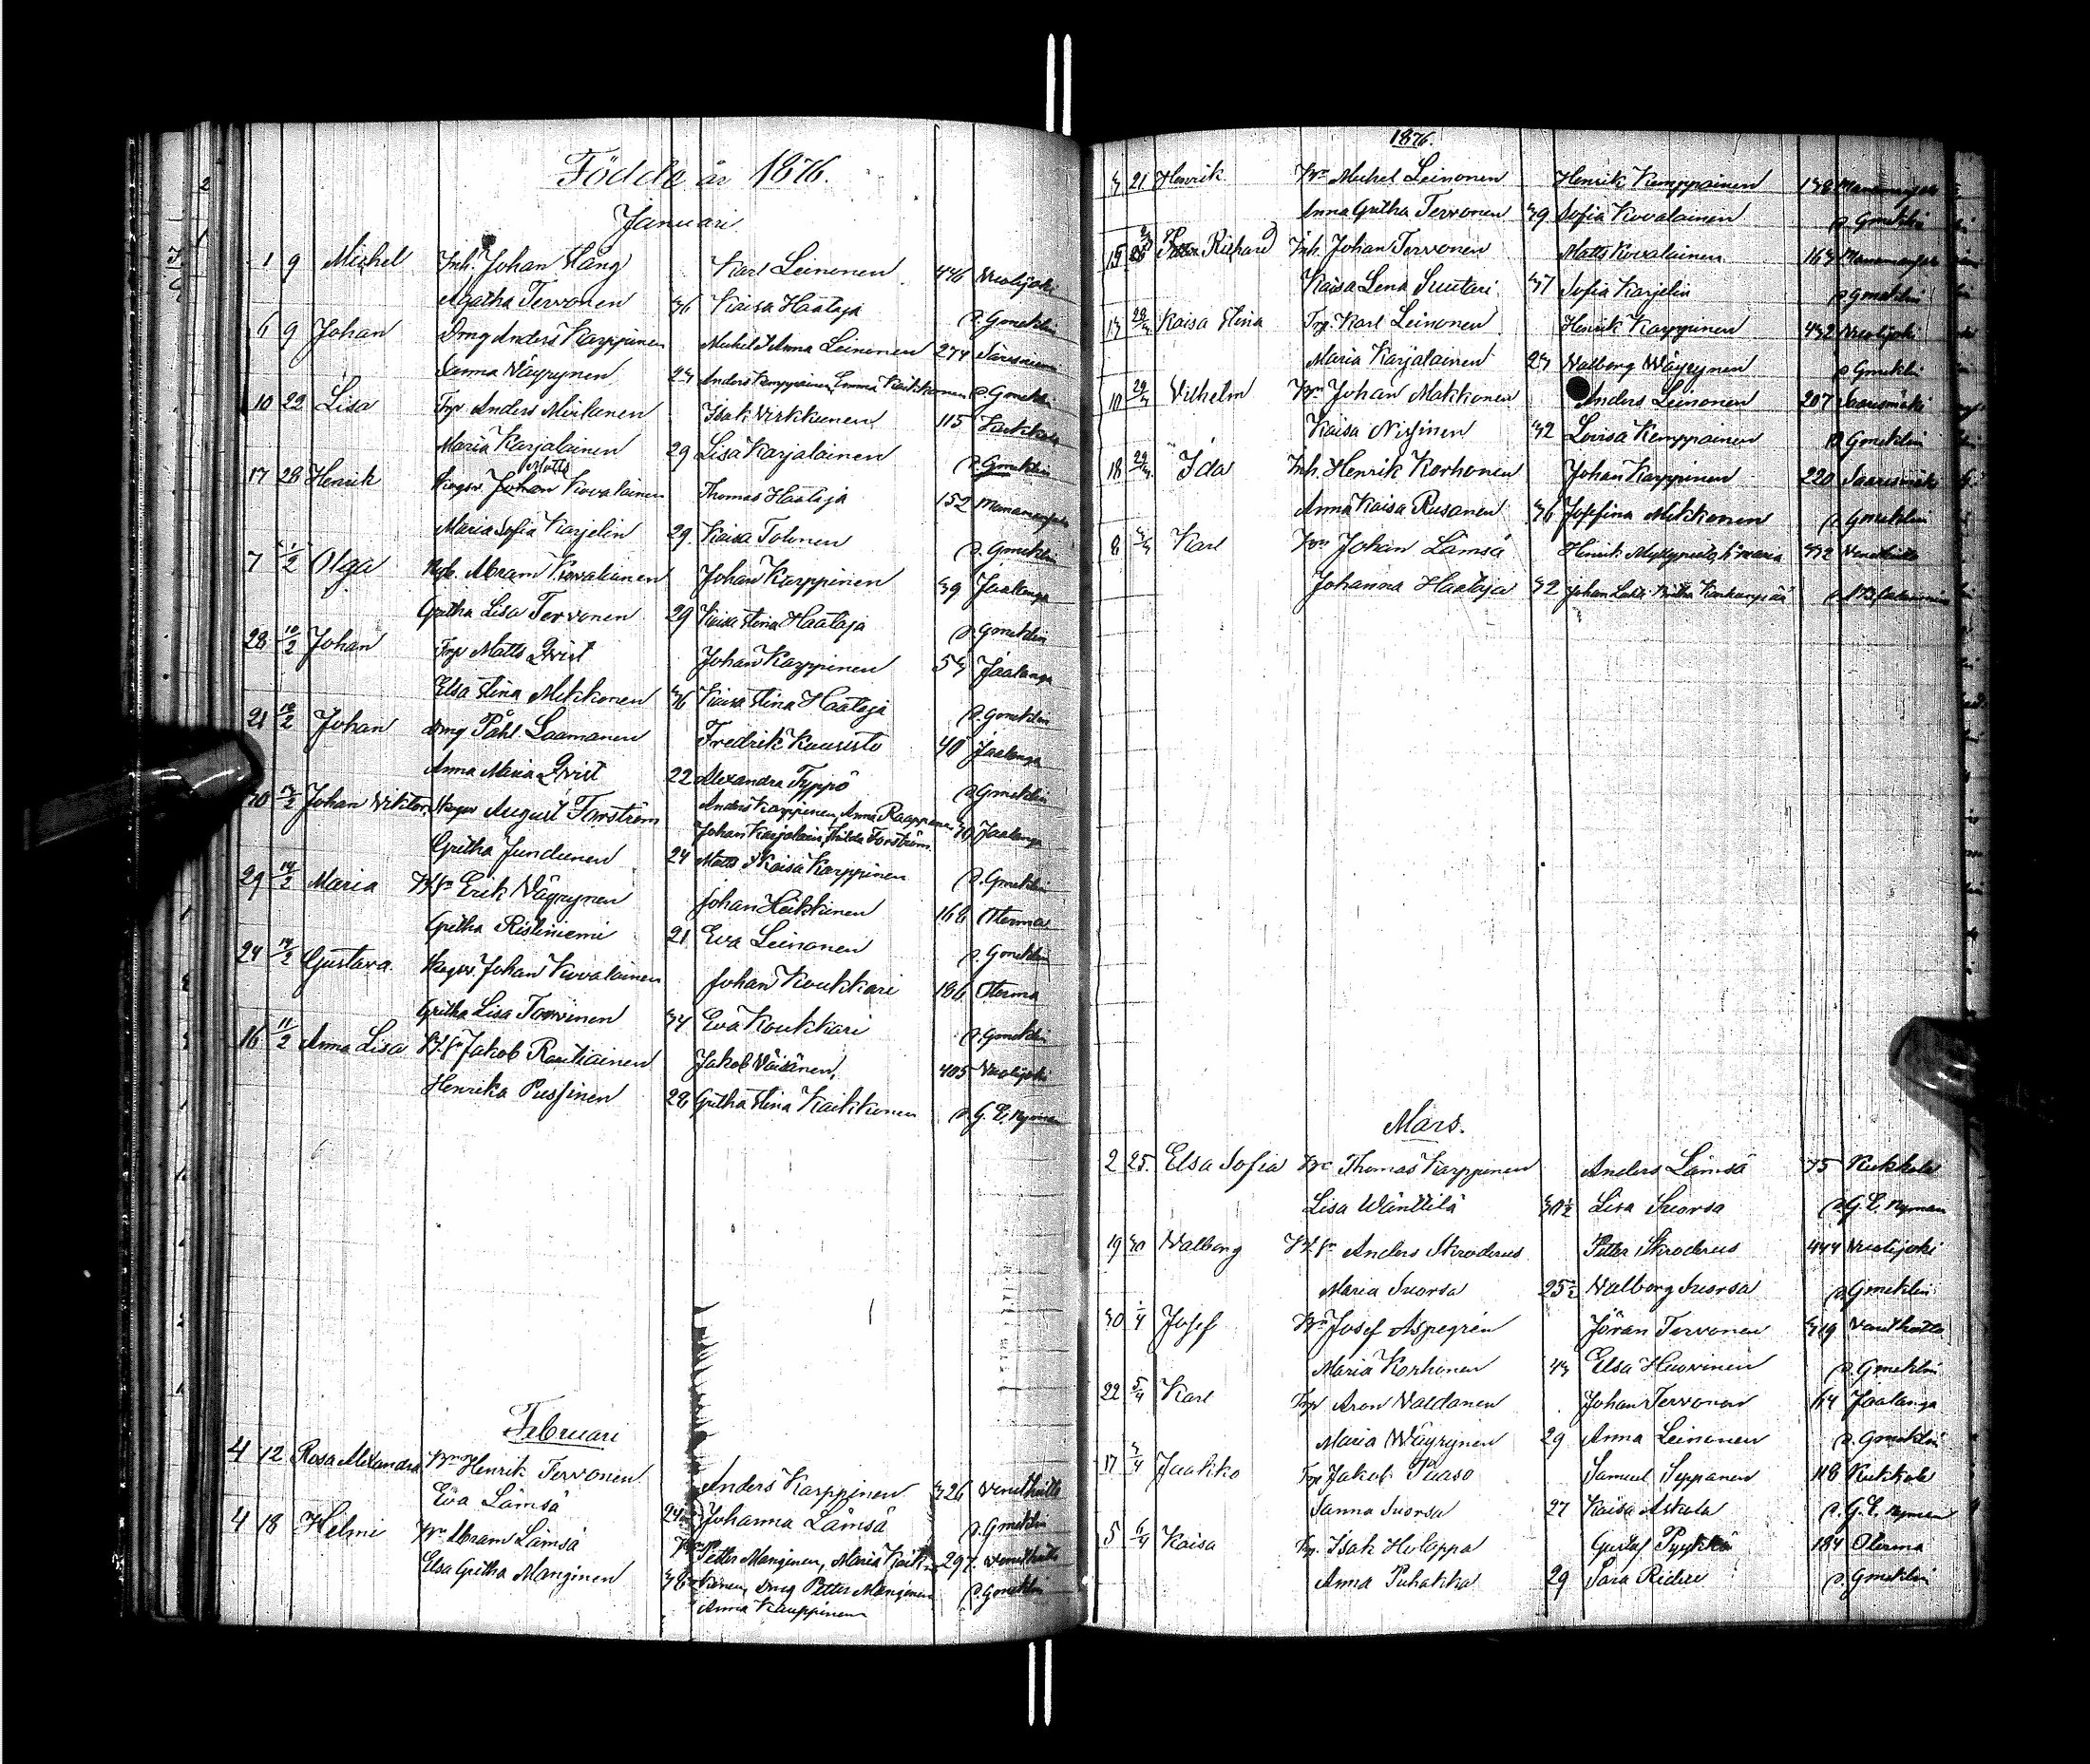 Födde år 1876.
Januari
1 9 Michel Inh. Johan Häng Karl Leinonen 446 Vuolijoki
Agatha Tervonen 36 Kaisa Haataja p. Gmeklin
6 9 Johan Dmg Anders Karppinen Michel & Anna Leinonen 274 Säresniemi
Sanna Väyrynen 23 Anders Kemppainen, Emma Kaikkonen p. Gmeklin
10 22 Lisa Trp Anders Mulanen Isak Virkkunen 115 Kukkola
Maria Karjalainen 29 Lisa Karjalainen p. Gmeklin
17 28 Henrik Skogsv. Johan Kovalainen Thomas Haataja 152 Manamansalo
Maria Sofia Karjelin 29. Kaisa Tolonen p. Gmeklin
7 1/2 Olga Nyb. Abram Kovalainen Johan Karppinen 39 Jaalanga
Gretha Lisa Tervonen 29 Kaisa Stina Haataja p. Gmeklin
28 10/2 Johan Trp Matts Qvist Johan Karppinen 53 Jaalanga
Elsa Stina Mikkonen 36 Kaisa Stina Haataja p. Gmeklin
21 Johan Dmg Påhl Laamanen Fredrik Kuusisto 40 Jaalanga
Anna Maria Qvist 22 Alexandra Typpö p. Gmeklin
30 Johan Viktor Skogsv August Forström Anders Karppinen, Anna Raappana 70 Jaalanga
Johan Karjalain, Hilda Forström.
Gretha Junttunen 24 Matts & Kaisa Karppinen p. Gmeklin
29 14/2 Maria Erik Väyrynen Johan Heikkinen 168 Oterma
Gretha Ristiniemi 21 Eva Leinonen p. Gmeklin
24 14/2 Gustava Skogsv. Johan Kovalainen Johan Koukkari 186 Oterma
Gretha Lisa Tervonen 34 Eva Koukkari p. Gmeklin
16 11/2 Anna Lisa Jakob Rautiainen Jakob Väisänen, 405 Vuolijoki
Henrika Pussinen 28 Gretha Stina Kaikkonen p. G. E. Nyman
Februari
4 12 Rosa Alexandra Bn Henrik Tervonen Anders Karppinen 326 Venetheitto
Eva Lämsä 24 Johanna Lämsä p. Gmeklin
4 18 Helmi Bn Abram Lämsä Petter Manginen, Maria Kaik- 297 Venetheitto
Elsa Gretha Manginen 38 konen, Dmg Petter Manginen p. Gmeklin
Anna Kauppinen
1876.
3 21 Henrik Bn Michel Leinonen Henrik Kemppainen 138 Manamansalo
Anna Gretha Tervonen 39 Sofia Kovalainen p. Gmeklin
15 Richard Inh. Johan Tervonen Matts Kovalainen 163 Manamansalo
Kaisa Lena Suutari 37 Sofia Karjelin p. Gmeklin
13 28/3 Kaisa Stina Trp. Karl Leinonen Henrik Karppinen 432 Vuolijoki
Maria Karjalainen 23 Walborg Wäyrynen p. Gmeklin
10 29/3 Vilhelm Bn Johan Makkonen Anders Leinonen 207 Saaresmäki
Kaisa Nissinen 32 Lovisa Kemppainen p Gmeklin
18 29/3 Ida Inh. Henrik Korhonen Johan Karppinen 220 Saaresmäki
Anna Kaisa Rusanen 36 Josefina Mikkonen p Gmeklin
8 3/3 Karl Bn Johan Lämsä Henrik Myllypuro, h. Maria 332 Venetheitto
Johanna Haataja 32 Johan Lahti Britha Kankaapää
Mars.
2 25. Elsa Sofia Bn Thomas Karppinen Anders Lämsä 75 Kukkola
Lisa Wänttilä 30½ Lisa Suorsa p. G. E. Nyman
19 30 Walborg Anders Skroderus Petter Skroderus 444 Vuolijoki
Maria Suorsa 25½ Walborg Suorsa p. Gmeklin
30 1/4 Josef Bn Josef Aspegrén Jöran Tervonen 319 Venetheitto
Maria Korhonen 43 Elsa Huovinen p. Gmeklin
22 5/4 Karl Trp Aron Valdanen Johan Tervonen 64 Jaalanga
Maria Wäyrynen 29 Anna Leinonen p. Gmeklin
17 3/4 Jaakko Trp Jakob Paaso Samuel Seppänen 118 Kukkola
Sanna Suorsa 27 Kaisa Askola p. G. E. Nyman
5 6/4 Kaisa Trp. Isak Holappa Gustaf Pyykkö 184 Oterma
Anna Puhakka 29 Sara Ridell p. Gmeklin